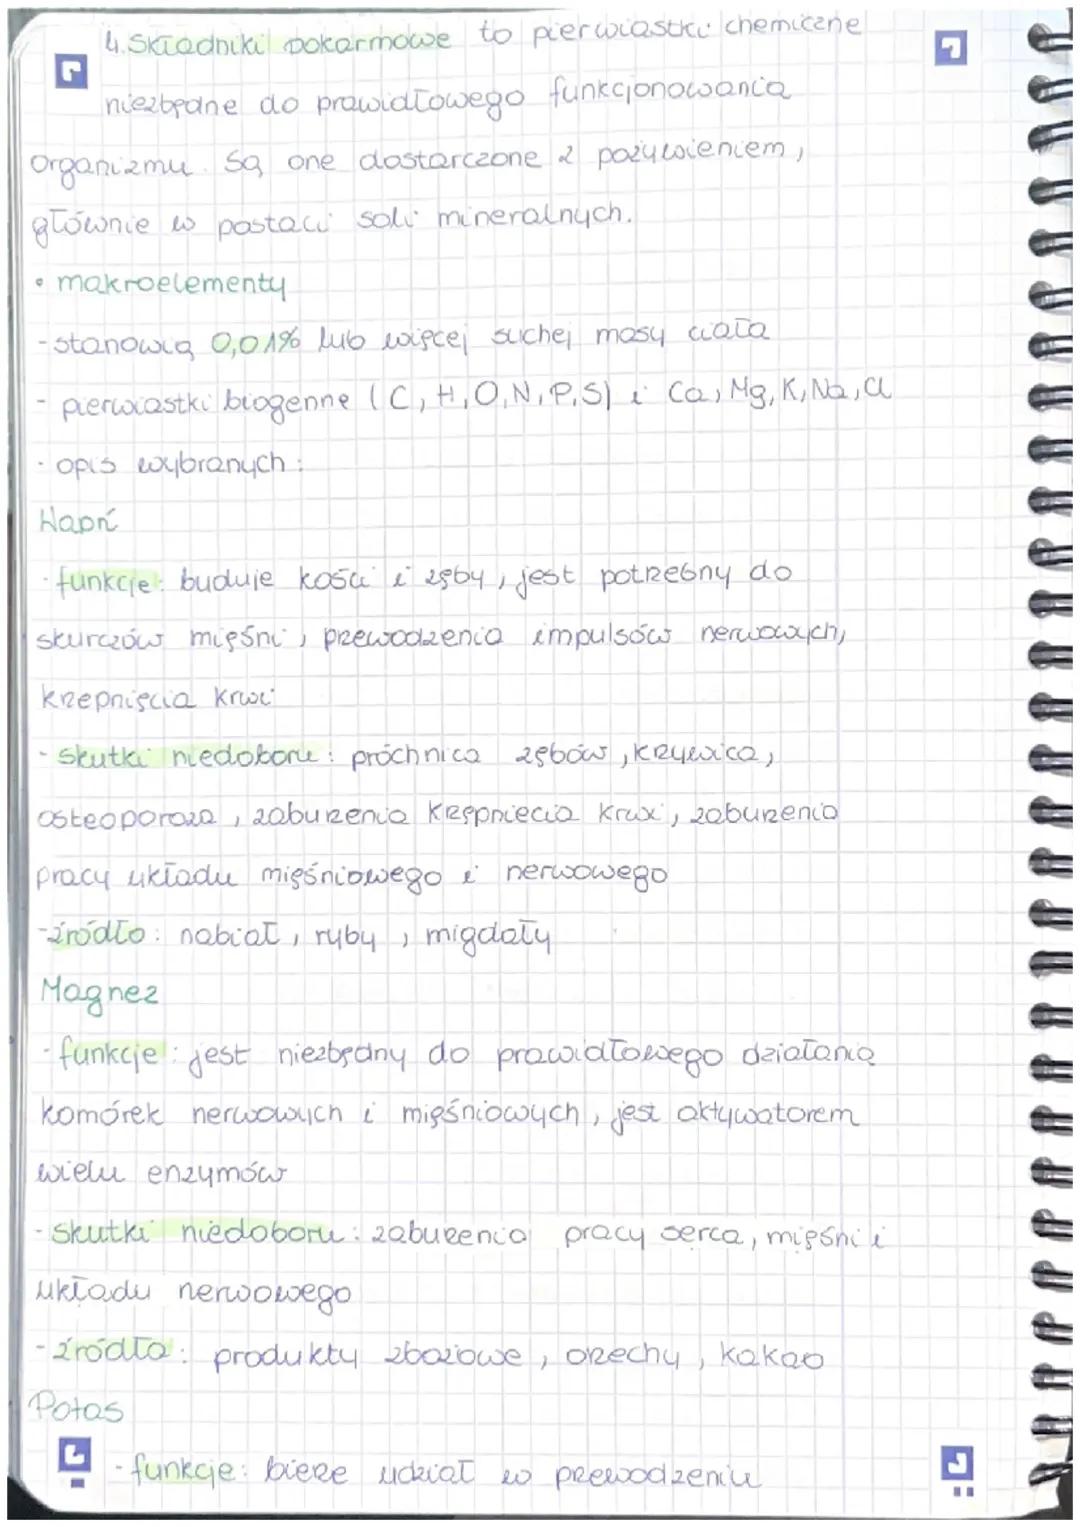 4. Składniki pokarmowe to pierwiastki chemiczne
niezbędne do prawidłowego funkcjonowania
organizmu. Są one dostarczone z pożywieniem,
głównie w postaci soli mineralnych.
• makroelementy
- stanowią 0,01% lub więcej suchej masy ciała
- pierwiastki biogenne (C, H, O, N, P, S) i Ca, Mg, K, Na, Cl
- opis wybranych:
Wapń
- funkcje: buduje kości i zęby, jest potrzebny do
skurczów mięśni, przewodzenia impulsów nerwowych,
krzepnięcia krwi
- skutki niedoboru: próchnica zębów, krzywica,
osteoporoza, zaburzenia krzepniecia krwi, zaburzenia
pracy układu mięśniowego i nerwowego
- źródło: nabiał, ryby, migdały
Magnez
- funkcje: jest niezbędny do prawidłowego działania
komórek nerwowych i mięśniowych, jest aktywatorem
wielu enzymów
- skutki niedoboru: zaburzenia pracy serca, mięśni i
układu nerwowego
- źródła: produkty zbożowe, orzechy, kakao
Potas
- funkcje: bierze udział w przewodzeniu